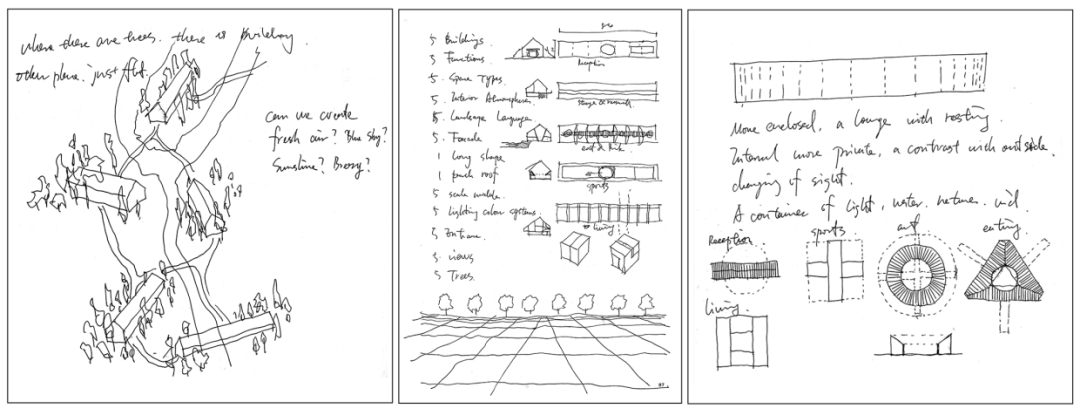 where there are trees. there is building
other place. just flat.
can we create
fresh air? Blue sky?
Sunshine? Breezy?
5 Buildings
5 Functions
5. Space Types
5. Interior Atmospheres
5. Landscape Language
5. Facade
1 long shape
1 pitch roof
5 scale
5 lighting colour systems
5 Entrance
5 views
5 Trees
Reception
sports
living
More enclosed, a lounge with resting.
Internal more private, a contrast with outside.
changing of sight.
A container of light, water, nature, wind
Reception
sports
art
eating
living